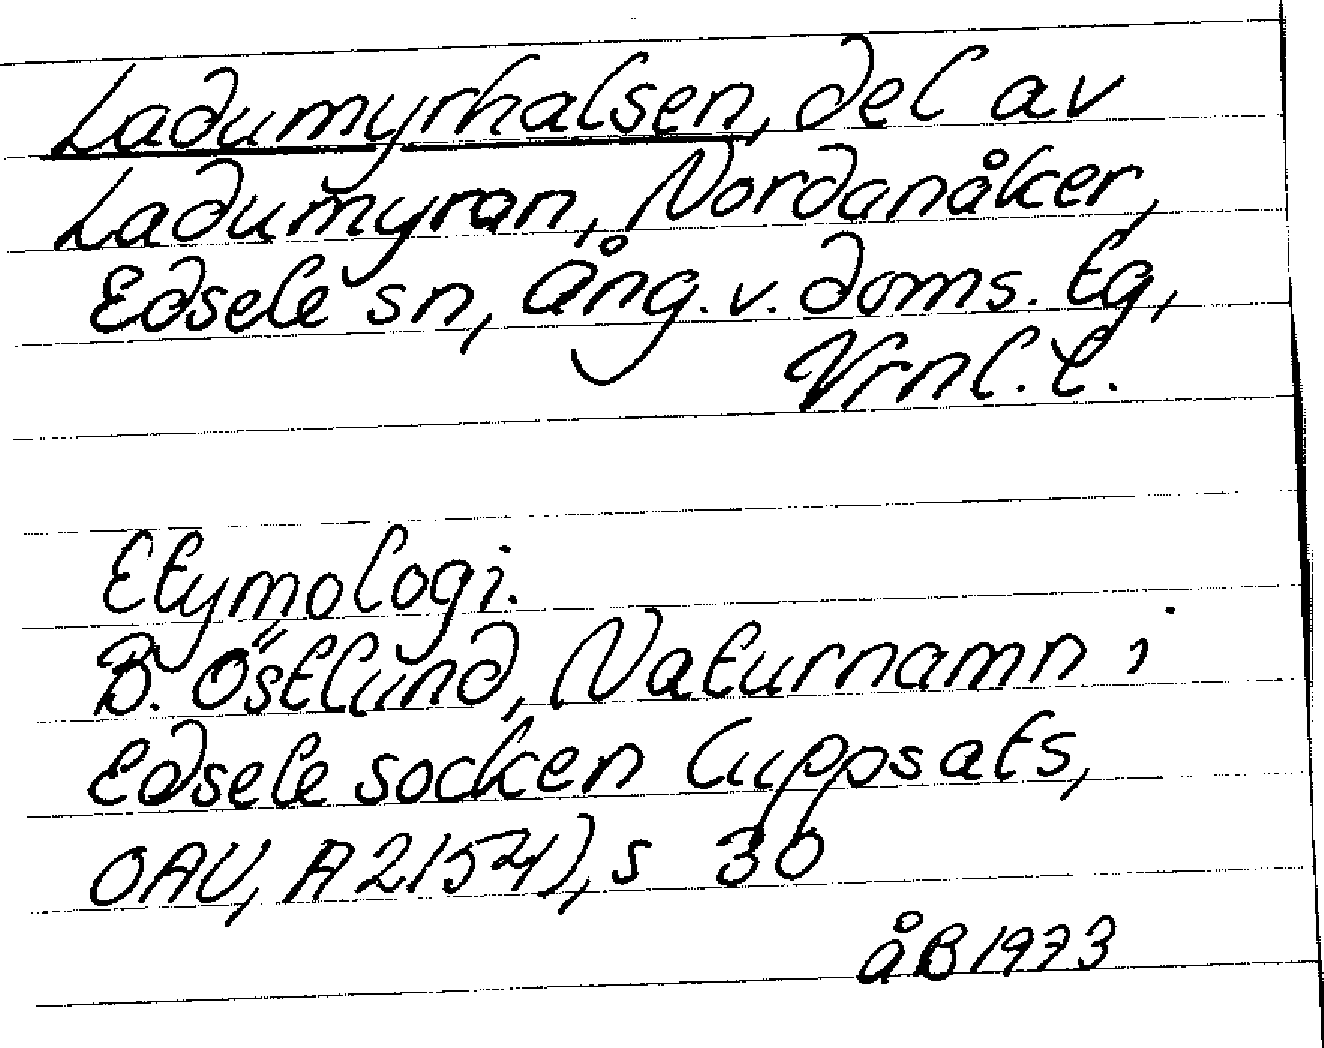 Ladumyrhalsen, del av
Ladumyran, Nordanåker,
Edsele sn, Ång. v. doms. tg,
Vrnl. l.
Etymologi.
B. Östlund, Naturnamn i
Edsele socken (uppsats,
OAU, A 2154), s 36
åB 1973